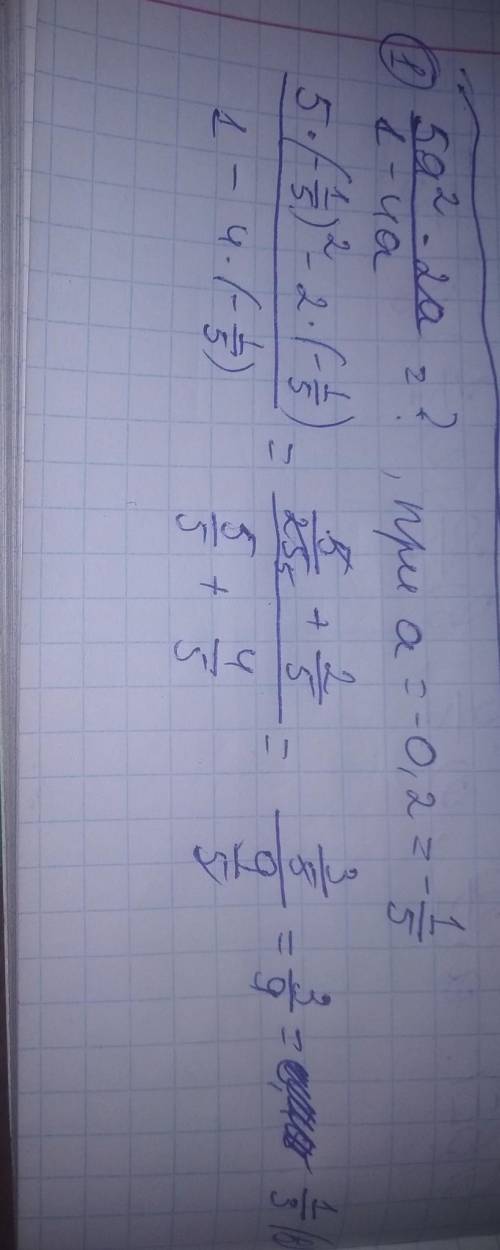 ① (5a² - 2a)/(1 - 4a) = ?, при a = -0,2 = -1/5
(5·(-1/5)² - 2·(-1/5))/(1 - 4·(-1/5)) = (5/25 5 + 2/5)/(5/5 + 4/5) = (3/5)/(9/5) = 3/9 = 1/3